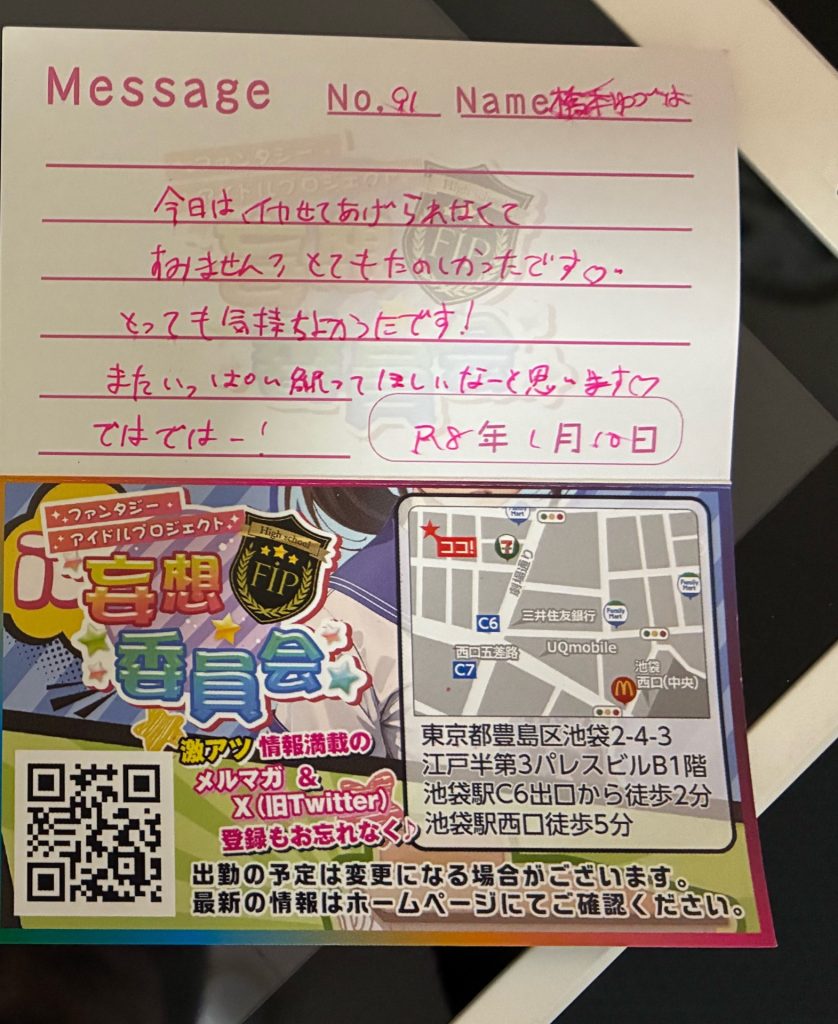 Message No.91 Name ゆづは
今日はイカせてあげられなくて
すみません とてもたのしかったです♡
とっても気持ちよかったです!
またいっぱい ってほしいなーと思います♡
ではではー!
R8年1月10日
ファンタジー
アイドルプロジェクト
High school
FIP
妄想
委員会
激アツ 情報満載の
メルマガ &
X(旧Twitter)
登録もお忘れなく♪
Family Mart
ココ!
劇場通り
Family Mart
C6
三井住友銀行
Family Mart
西口五差路
UQmobile
C7
池袋
西口(中央)
東京都豊島区池袋2-4-3
江戸半第3パレスビルB1階
池袋駅C6出口から徒歩2分
池袋駅西口徒歩5分
出勤の予定は変更になる場合がございます。
最新の情報はホームページにてご確認ください。